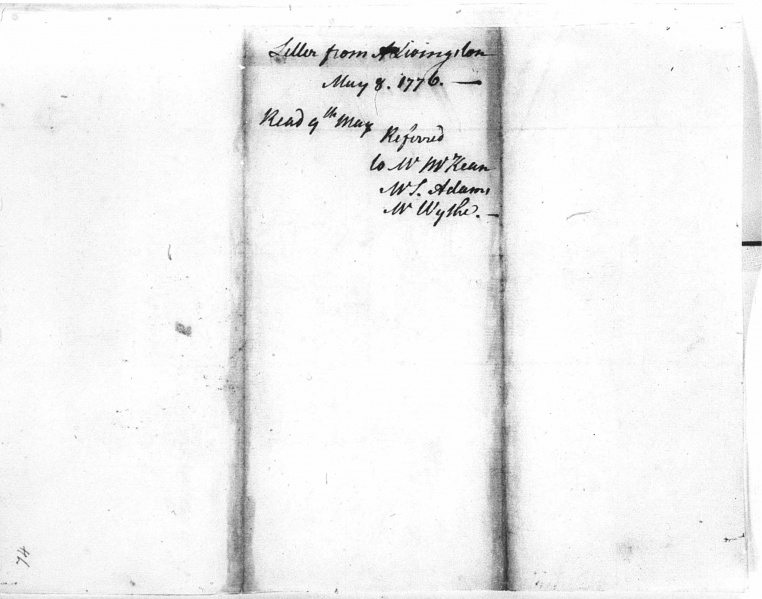 Letter from A Livingston
May 8. 1776. —
Read 9th May
Referred
to Mr McKean
Mr S. Adams
Mr Wythe. —
74